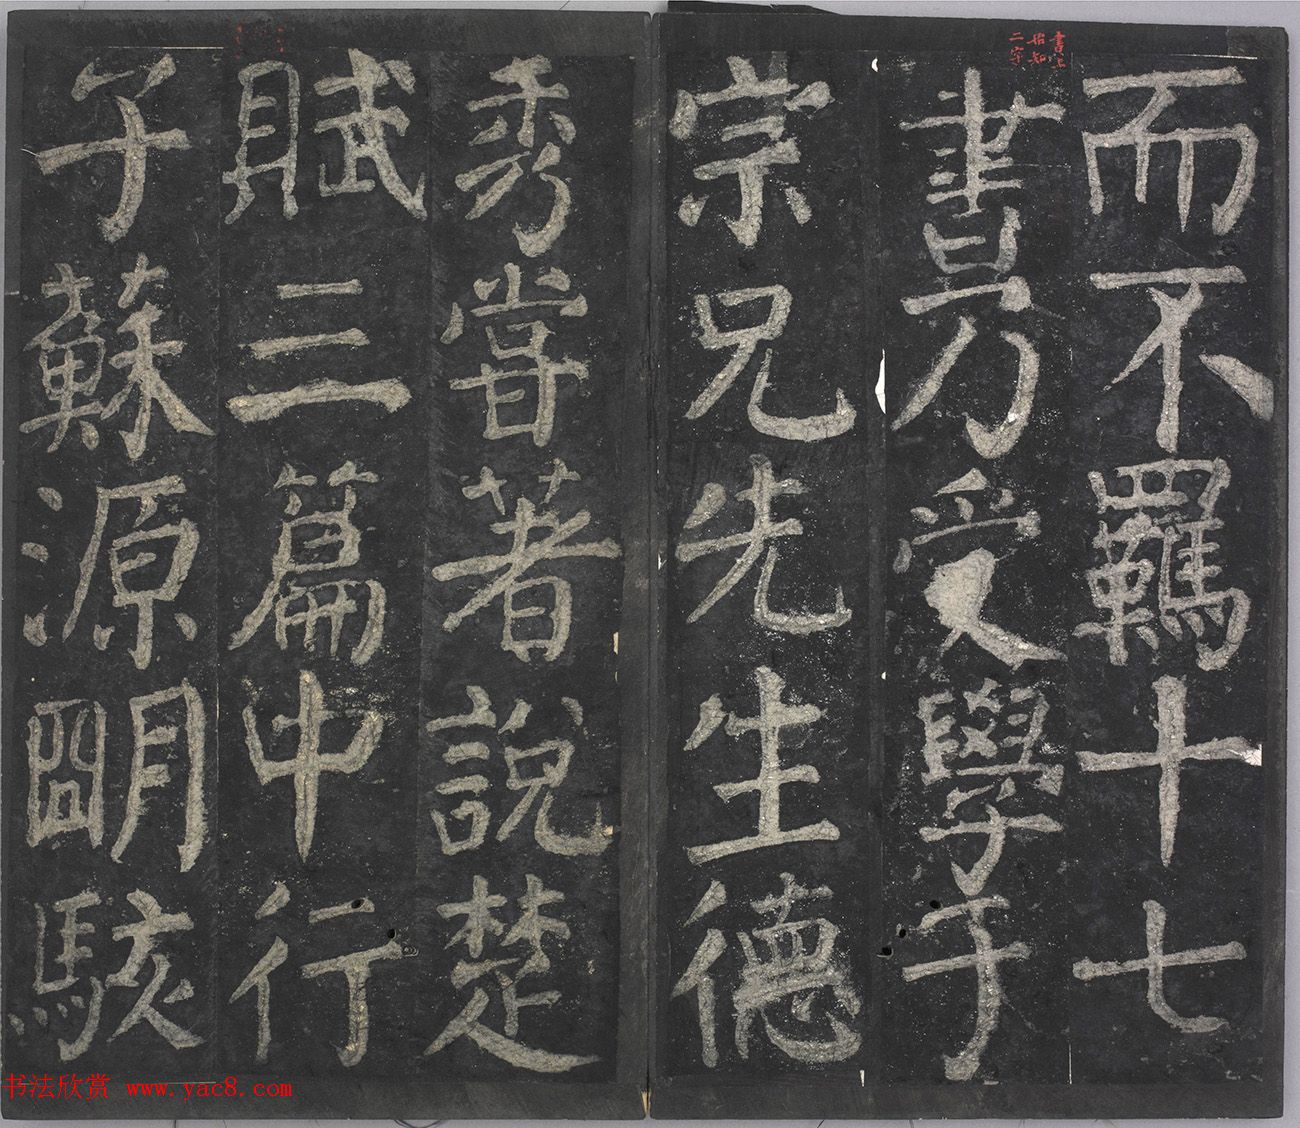 而不羈十七
書乃受學于
宗兄先生德
秀嘗著說楚
賦三篇中行
子蘇源明駭
書法欣赏 www.yac8.com